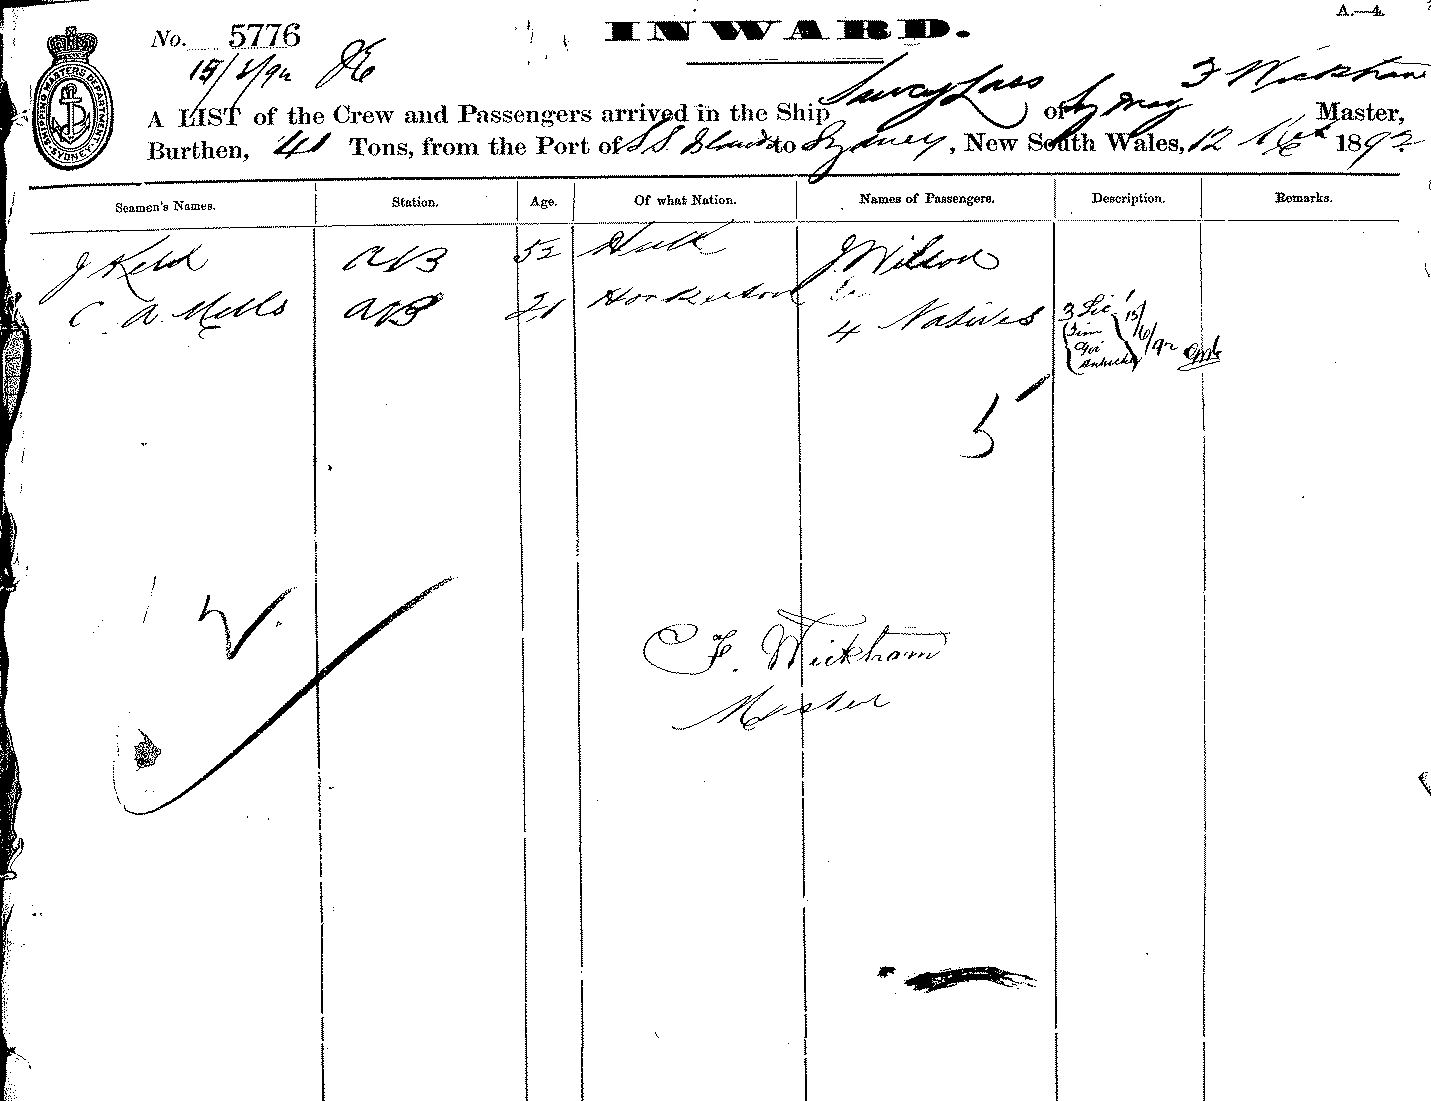 A.—4.
No. 5776
INWARD.
SHIPPING MASTERS DEPARTMENT SYDNEY
A LIST of the Crew and Passengers arrived in the Ship Saucy Lass of Sydney F Wickham Master,
Burthen, 41 Tons, from the Port of S S Islands to Sydney, New South Wales, 12 1892
Seamen's Names. Station. Age. Of what Nation. Names of Passengers. Description. Remarks.
J Keld AB 52 Hull J Wilson
C. A. Mells AB 21 4 Natives 3
15/6/92
5
C F. Wickham
Master